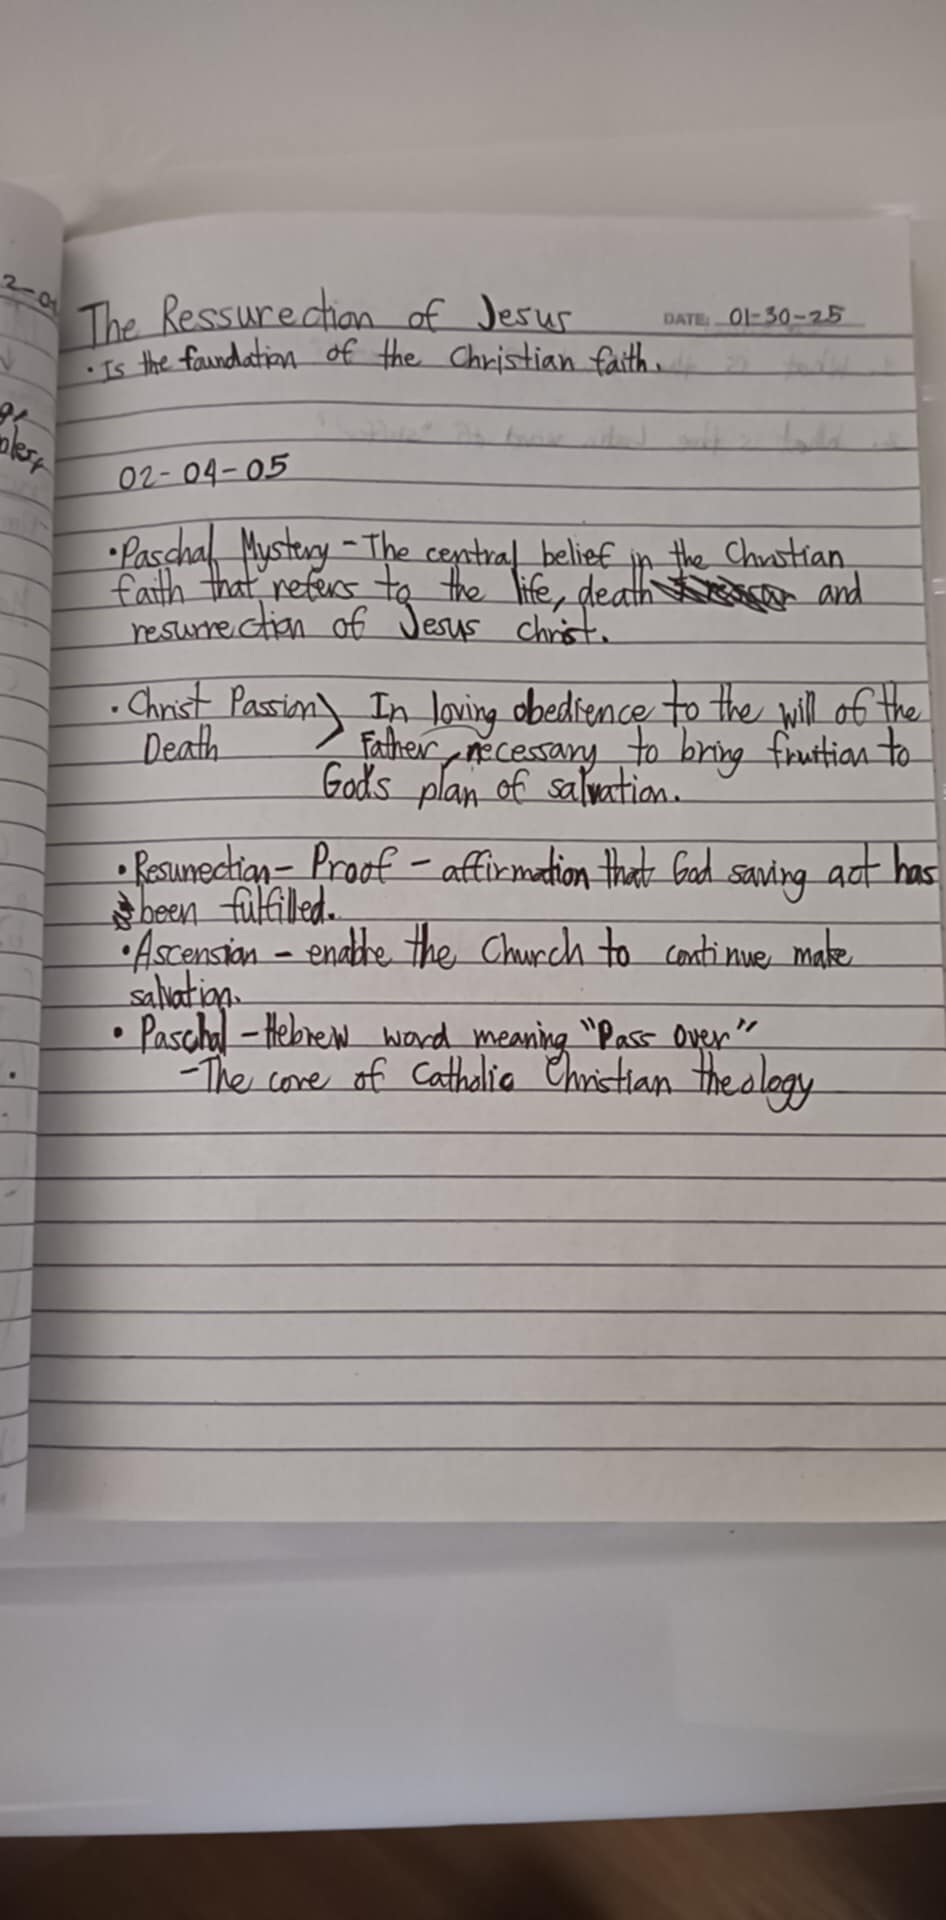 The Ressurection of Jesus
DATE: 01-30-25
• Is the foundation of the Christian faith.
02-04-05
• Paschal Mystery - The central belief in the Christian
faith that refers to the life, death and
resurrection of Jesus Christ.
• Christ Passion > In loving obedience to the will of the
Death Father, necessary to bring fruition to
God's plan of salvation.
• Resurrection - Proof - affirmation that God saving act has
been fulfilled.
• Ascension - enable the Church to continue make
salvation.
• Paschal - Hebrew word meaning "Pass Over"
- The core of Catholic Christian theology